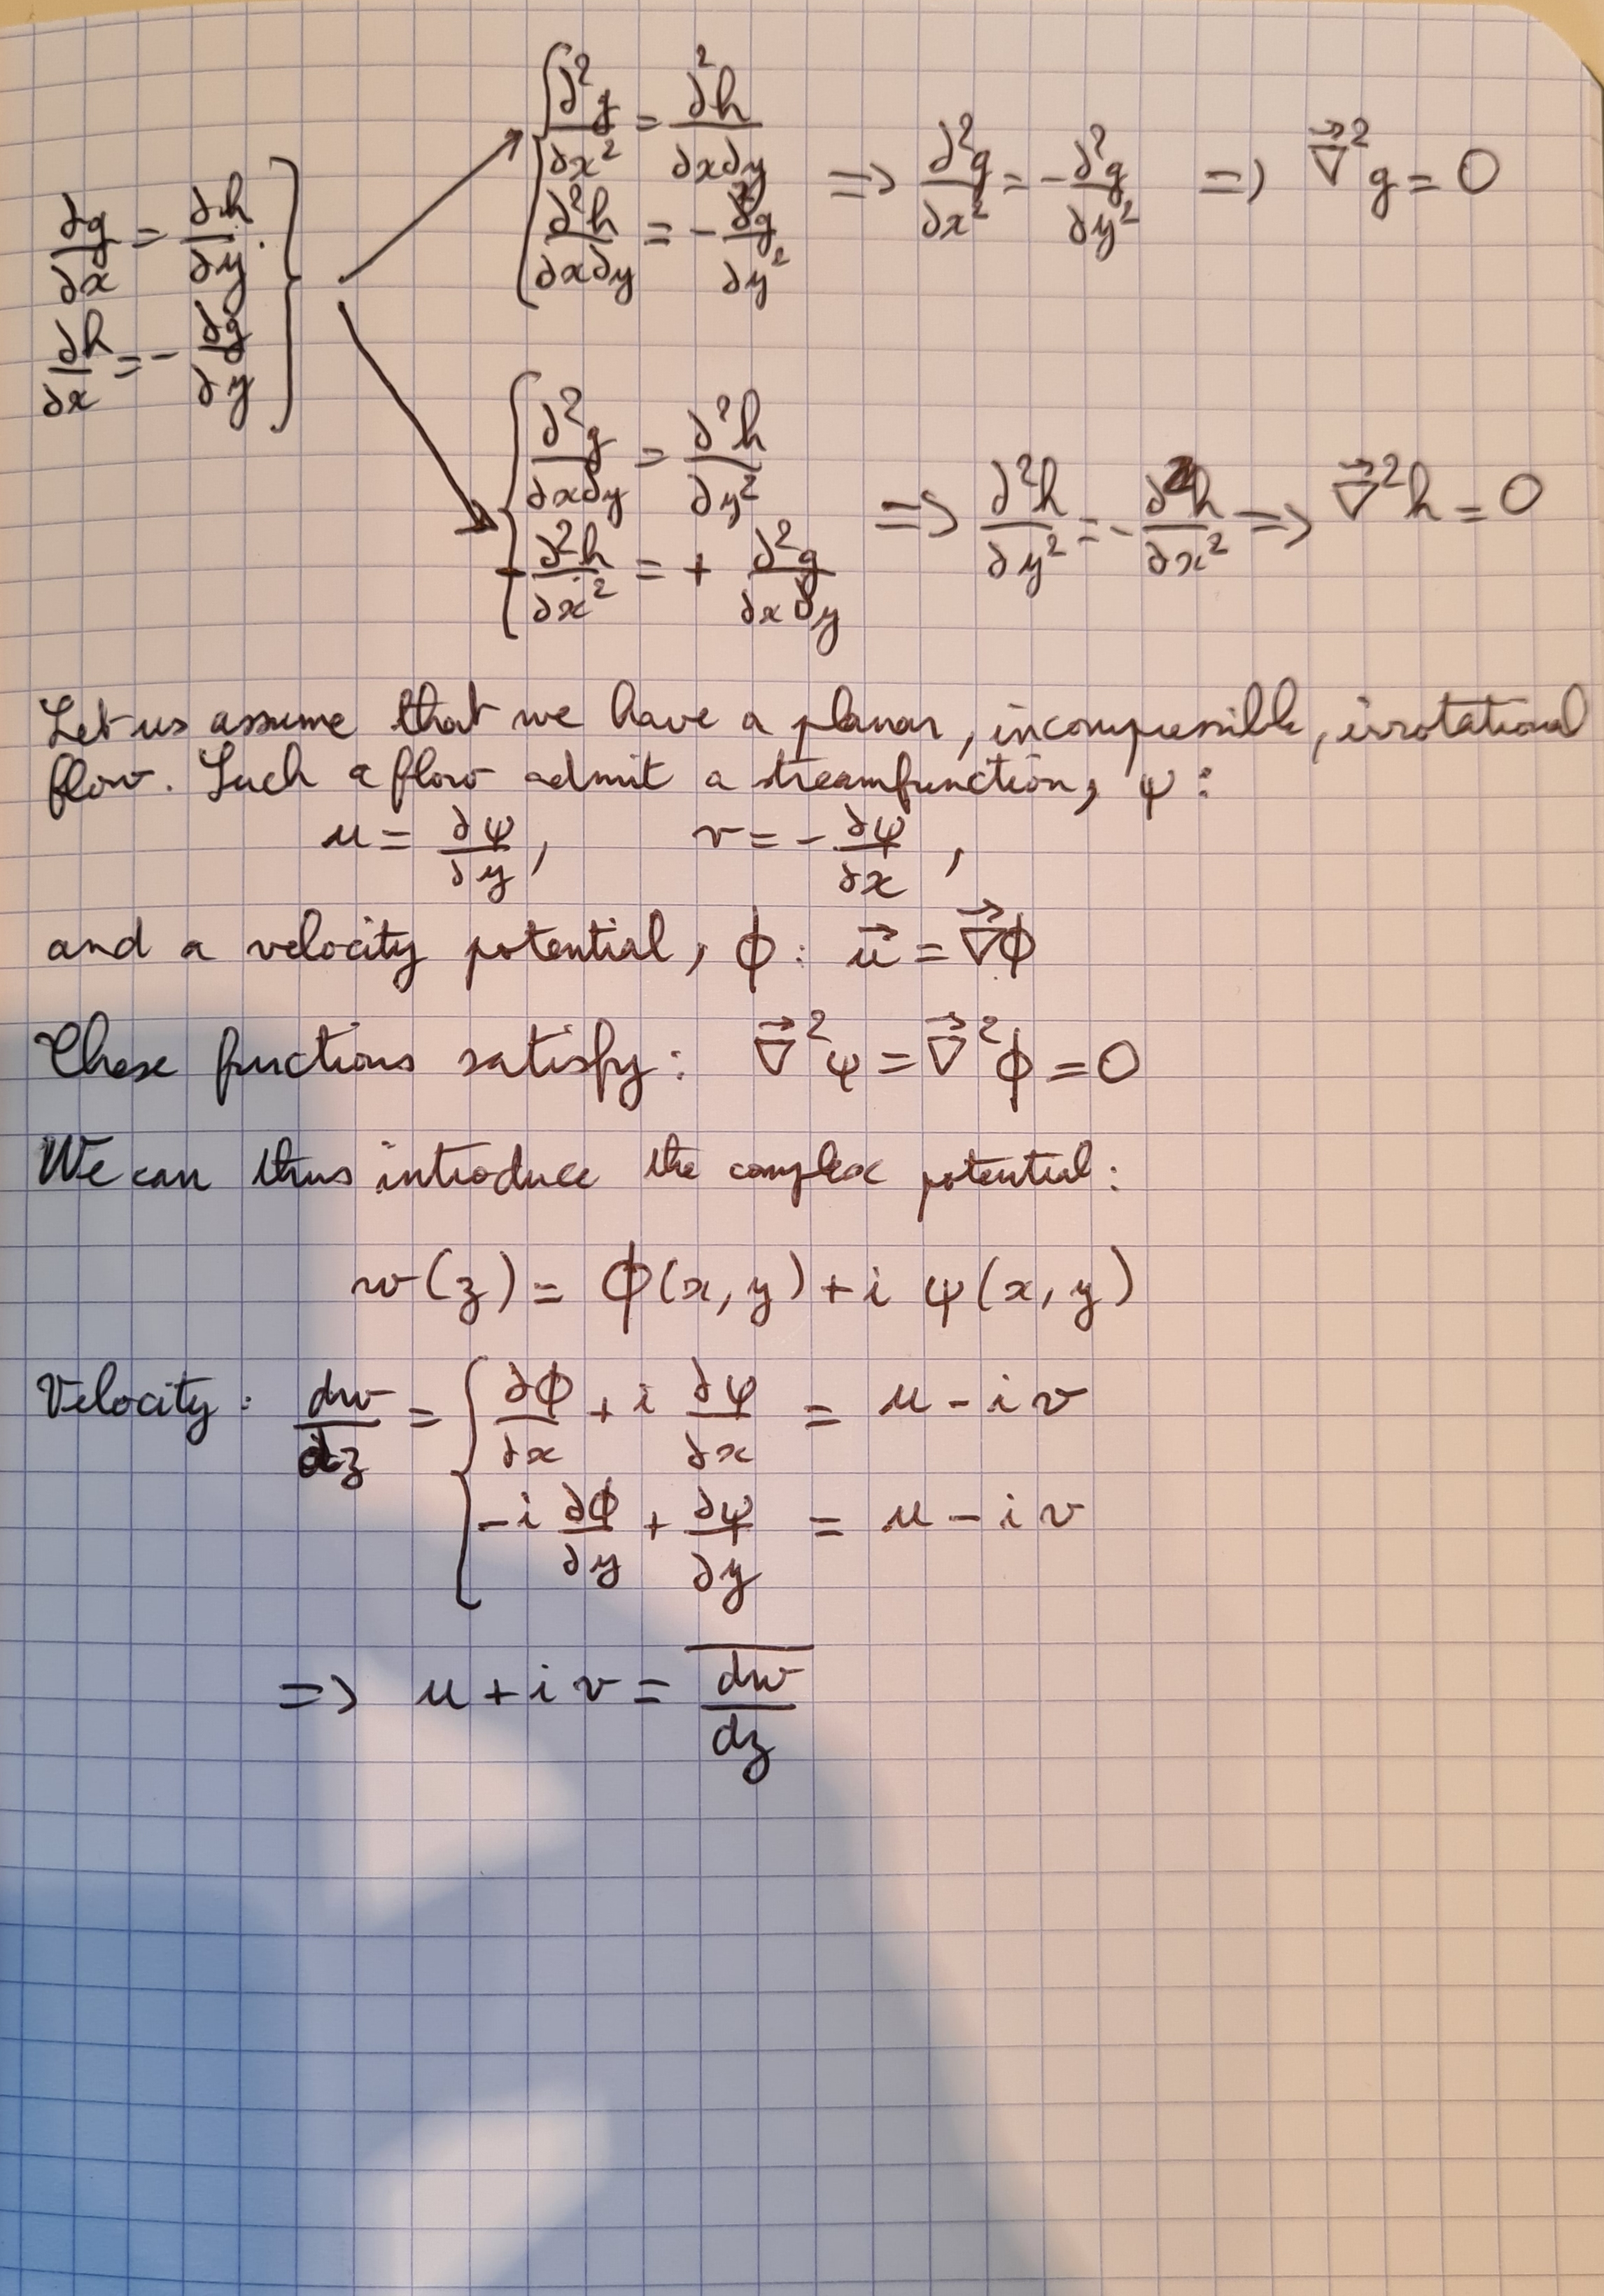 ∂g/∂x = ∂h/∂y
∂h/∂x = - ∂g/∂y
∂²g/∂x² = ∂²h/∂x∂y
∂²h/∂x∂y = - ∂²g/∂y²
=> ∂²g/∂x² = - ∂²g/∂y² => ∇⃗²g = 0
∂²g/∂x∂y = ∂²h/∂y²
- ∂²h/∂x² = + ∂²g/∂x∂y
=> ∂²h/∂y² = - ∂²h/∂x² => ∇⃗²h = 0
Let us assume that we have a planar, incompressible, irrotational
flow. Such a flow admit a streamfunction, ψ :
u = ∂ψ/∂y, v = - ∂ψ/∂x ,
and a velocity potential, ϕ : u⃗ = ∇⃗ϕ
These functions satisfy : ∇⃗²ψ = ∇⃗²ϕ = 0
We can thus introduce the complex potential :
w(z) = ϕ(x, y) + i ψ(x, y)
Velocity : dw/dz = { ∂ϕ/∂x + i ∂ψ/∂x = u - i v
-i ∂ϕ/∂y + ∂ψ/∂y = u - i v
=> u + i v = \overline{dw/dz}